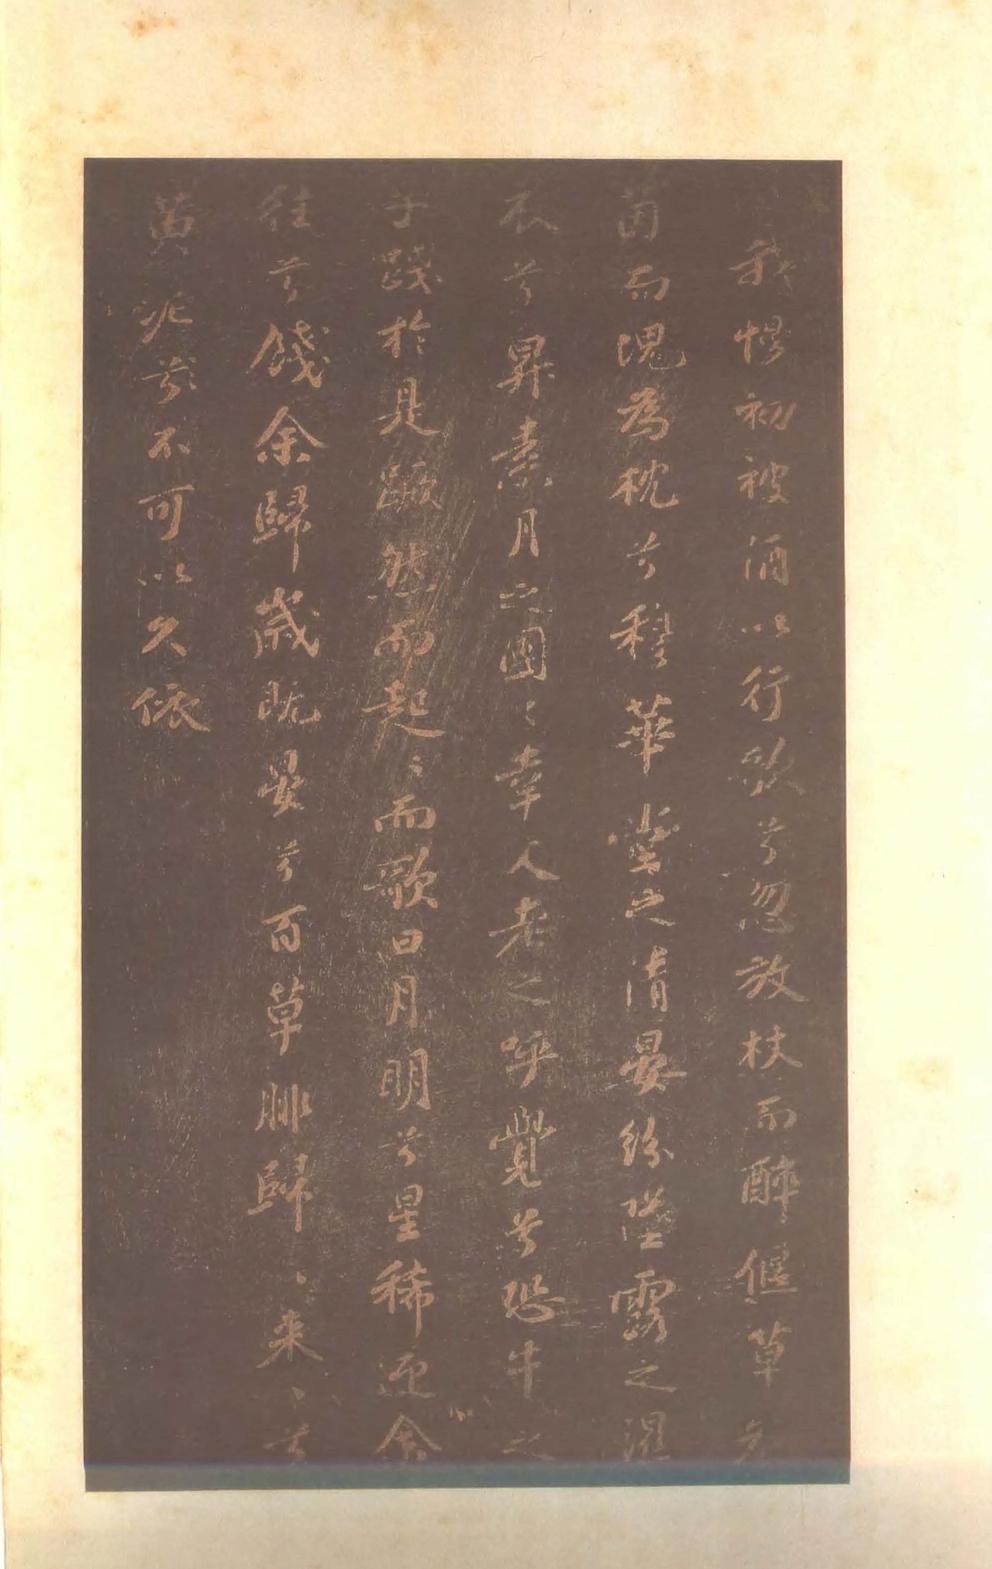 我慢初被酒以行歌兮忽放杖而醉偃草為
茵而塊為枕兮穆華堂之清晏紛墜露之濕
衣兮昇素月之團〻幸人老之呼覺兮恐牛之
予踐於是蹶然而起〻而歌曰月明兮星稀迎余
往兮餞余歸歲既晏兮百草腓歸〻来〻兮
黄泥兮不可以久依